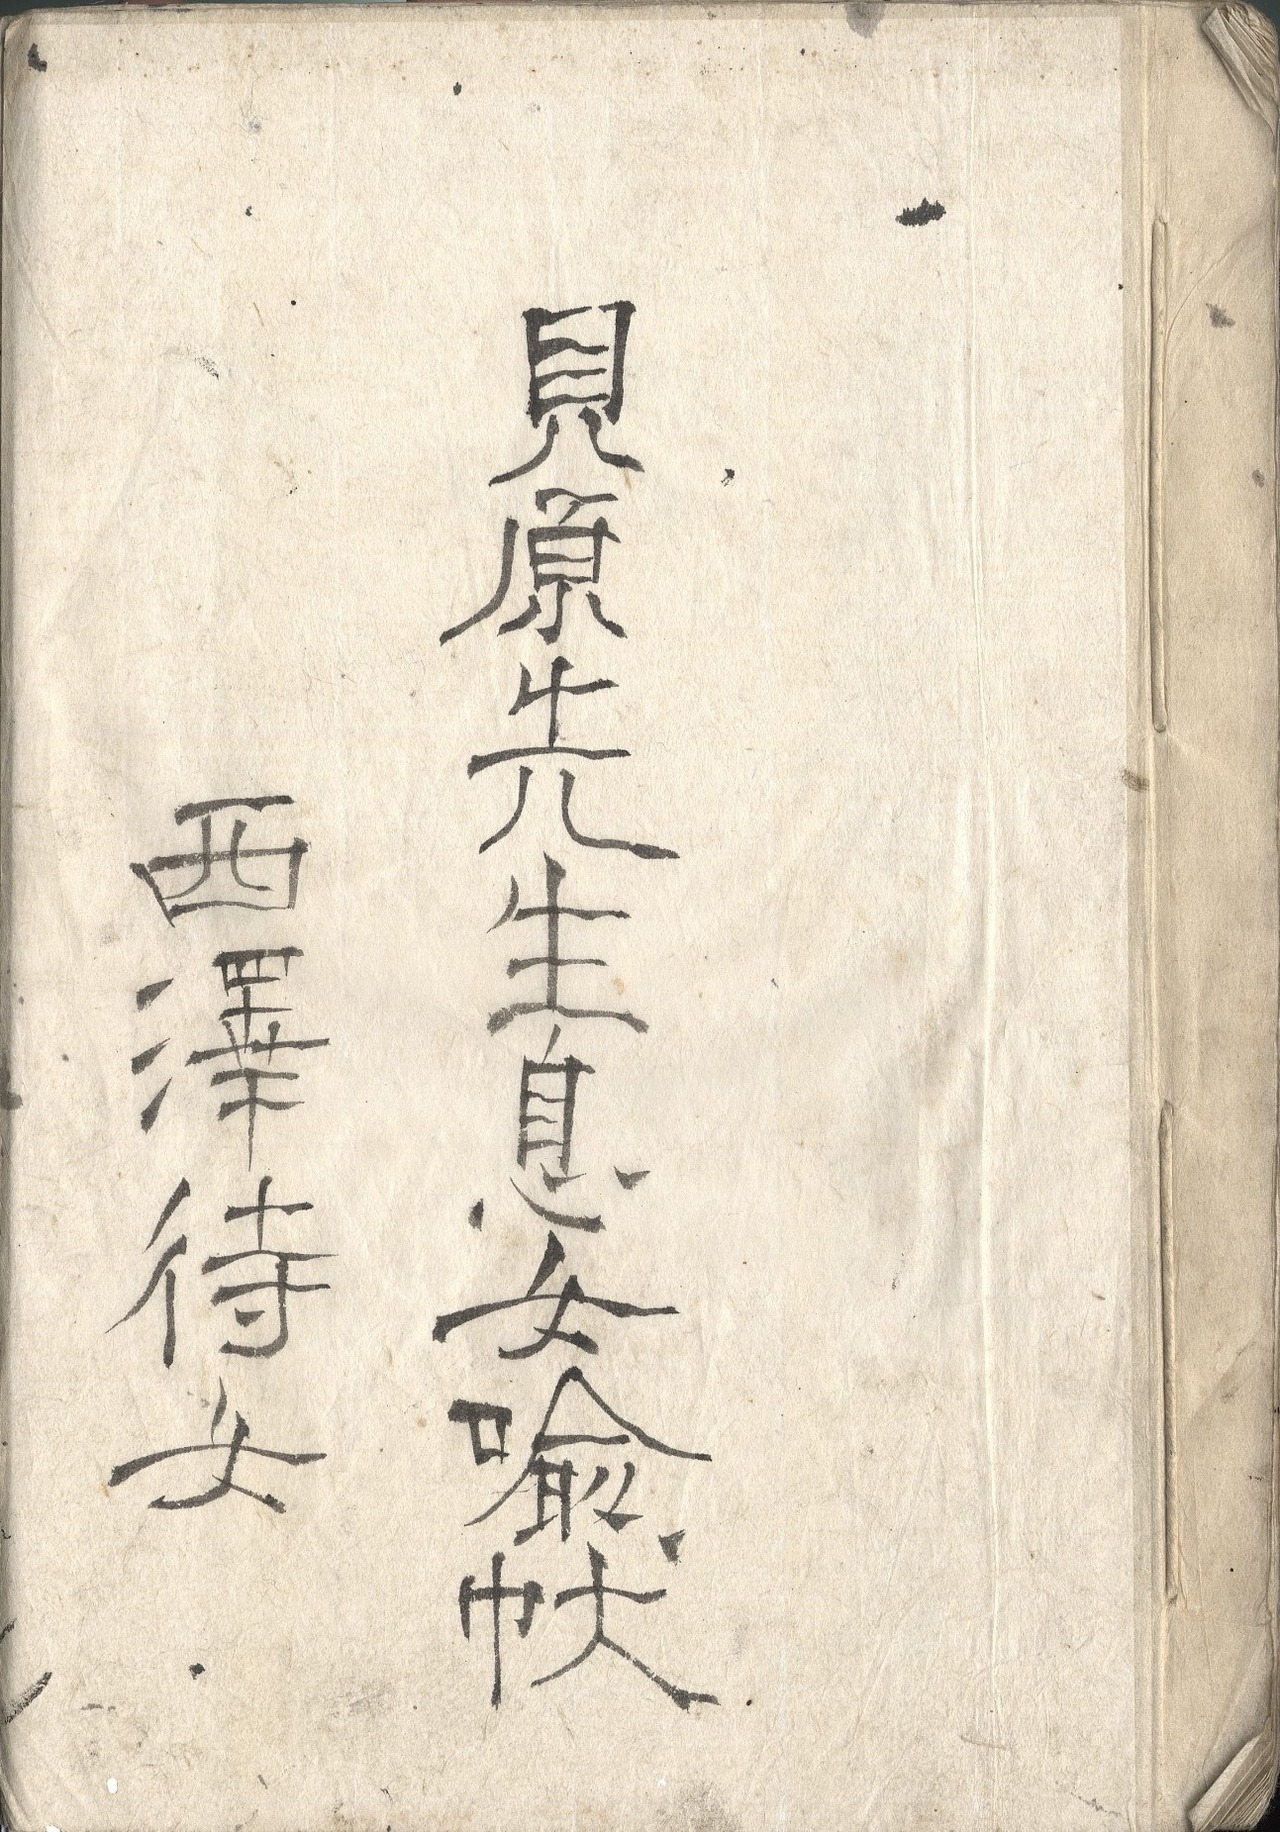 貝原先生息女喩帙
西澤待女